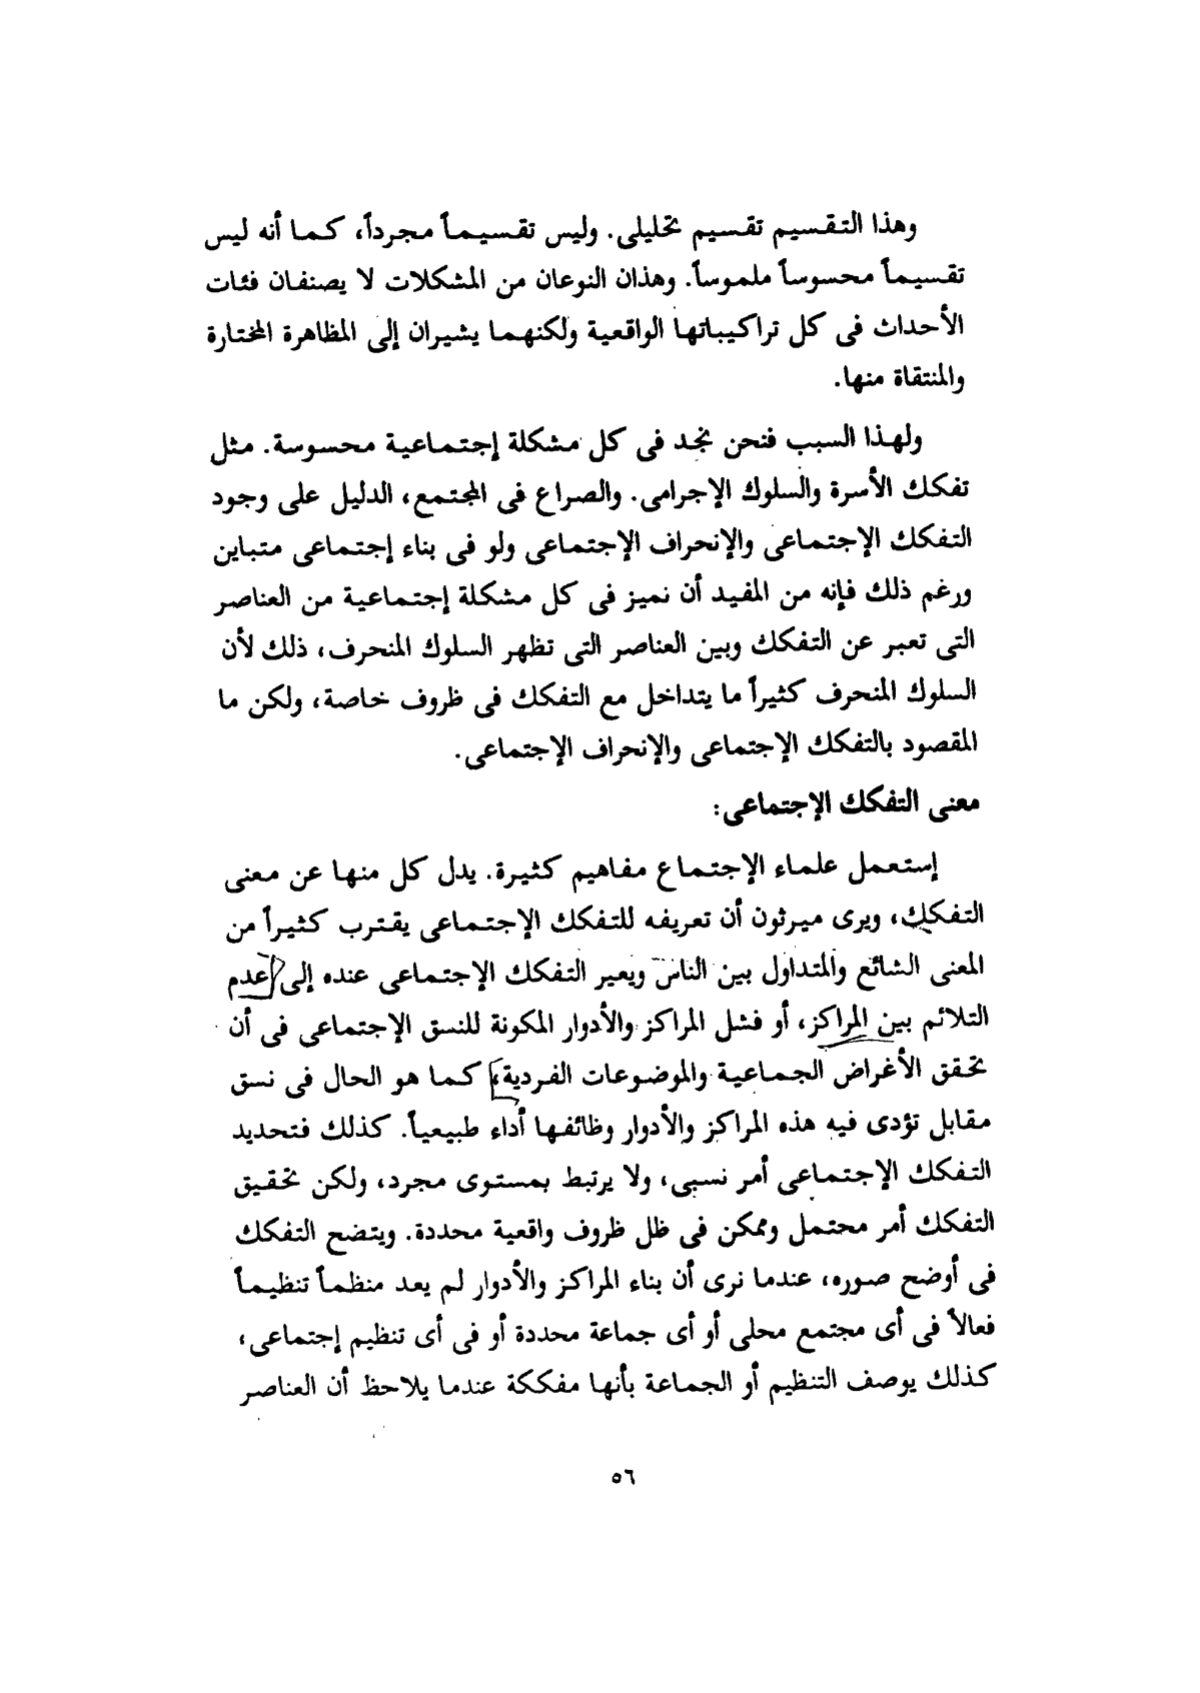 وهذا التقسيم تقسيم تحليلى. وليس تقسيماً مجرداً، كما أنه ليس
تقسيماً محسوساً ملموساً. وهذان النوعان من المشكلات لا يصنفان فئات
الأحداث فى كل تراكيباتها الواقعية ولكنهما يشيران إلى المظاهرة المختارة
والمنتقاة منها.
ولهذا السبب فنحن نجد فى كل مشكلة إجتماعية محسوسة. مثل
تفكك الأسرة والسلوك الإجرامى. والصراع فى المجتمع، الدليل على وجود
التفكك الإجتماعى والإنحراف الإجتماعى ولو فى بناء إجتماعى متباين
ورغم ذلك فإنه من المفيد أن نميز فى كل مشكلة إجتماعية من العناصر
التى تعبر عن التفكك وبين العناصر التى تظهر السلوك المنحرف، ذلك لأن
السلوك المنحرف كثيراً ما يتداخل مع التفكك فى ظروف خاصة، ولكن ما
المقصود بالتفكك الإجتماعى والإنحراف الإجتماعى.
معنى التفكك الإجتماعى:
إستعمل علماء الإجتماع مفاهيم كثيرة. يدل كل منها عن معنى
التفكك، ويرى ميرثون أن تعريفه للتفكك الإجتماعى يقترب كثيراً من
المعنى الشائع والمتداول بين الناس ويعير التفكك الإجتماعى عنده إلى عدم
التلائم بين المراكز، أو فشل المراكز والأدوار المكونة للنسق الإجتماعى فى أن
تحقق الأغراض الجماعية والموضوعات الفردية، كما هو الحال فى نسق
مقابل تؤدى فيه هذه المراكز والأدوار وظائفها أداء طبيعياً. كذلك فتحديد
التفكك الإجتماعى أمر نسبى، ولا يرتبط بمستوى مجرد، ولكن تحقيق
التفكك أمر محتمل وممكن فى ظل ظروف واقعية محددة. ويتضح التفكك
فى أوضح صوره، عندما نرى أن بناء المراكز والأدوار لم يعد منظماً تنظيماً
فعالاً فى أى مجتمع محلى أو أى جماعة محددة أو فى أى تنظيم إجتماعى،
كذلك يوصف التنظيم أو الجماعة بأنها مفككة عندما يلاحظ أن العناصر
٥٦